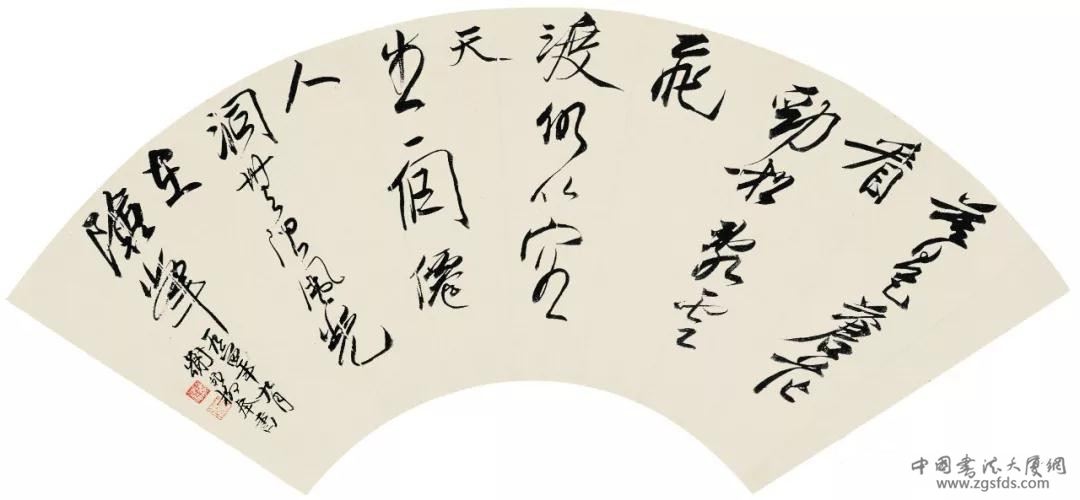 暮色蒼茫
看
勁松亂雲
飛
渡仍从容
天
生一個僊
人
洞無限風光
在
險峰
年九月
謝
中國書法大廈網
www.zgsfds.com